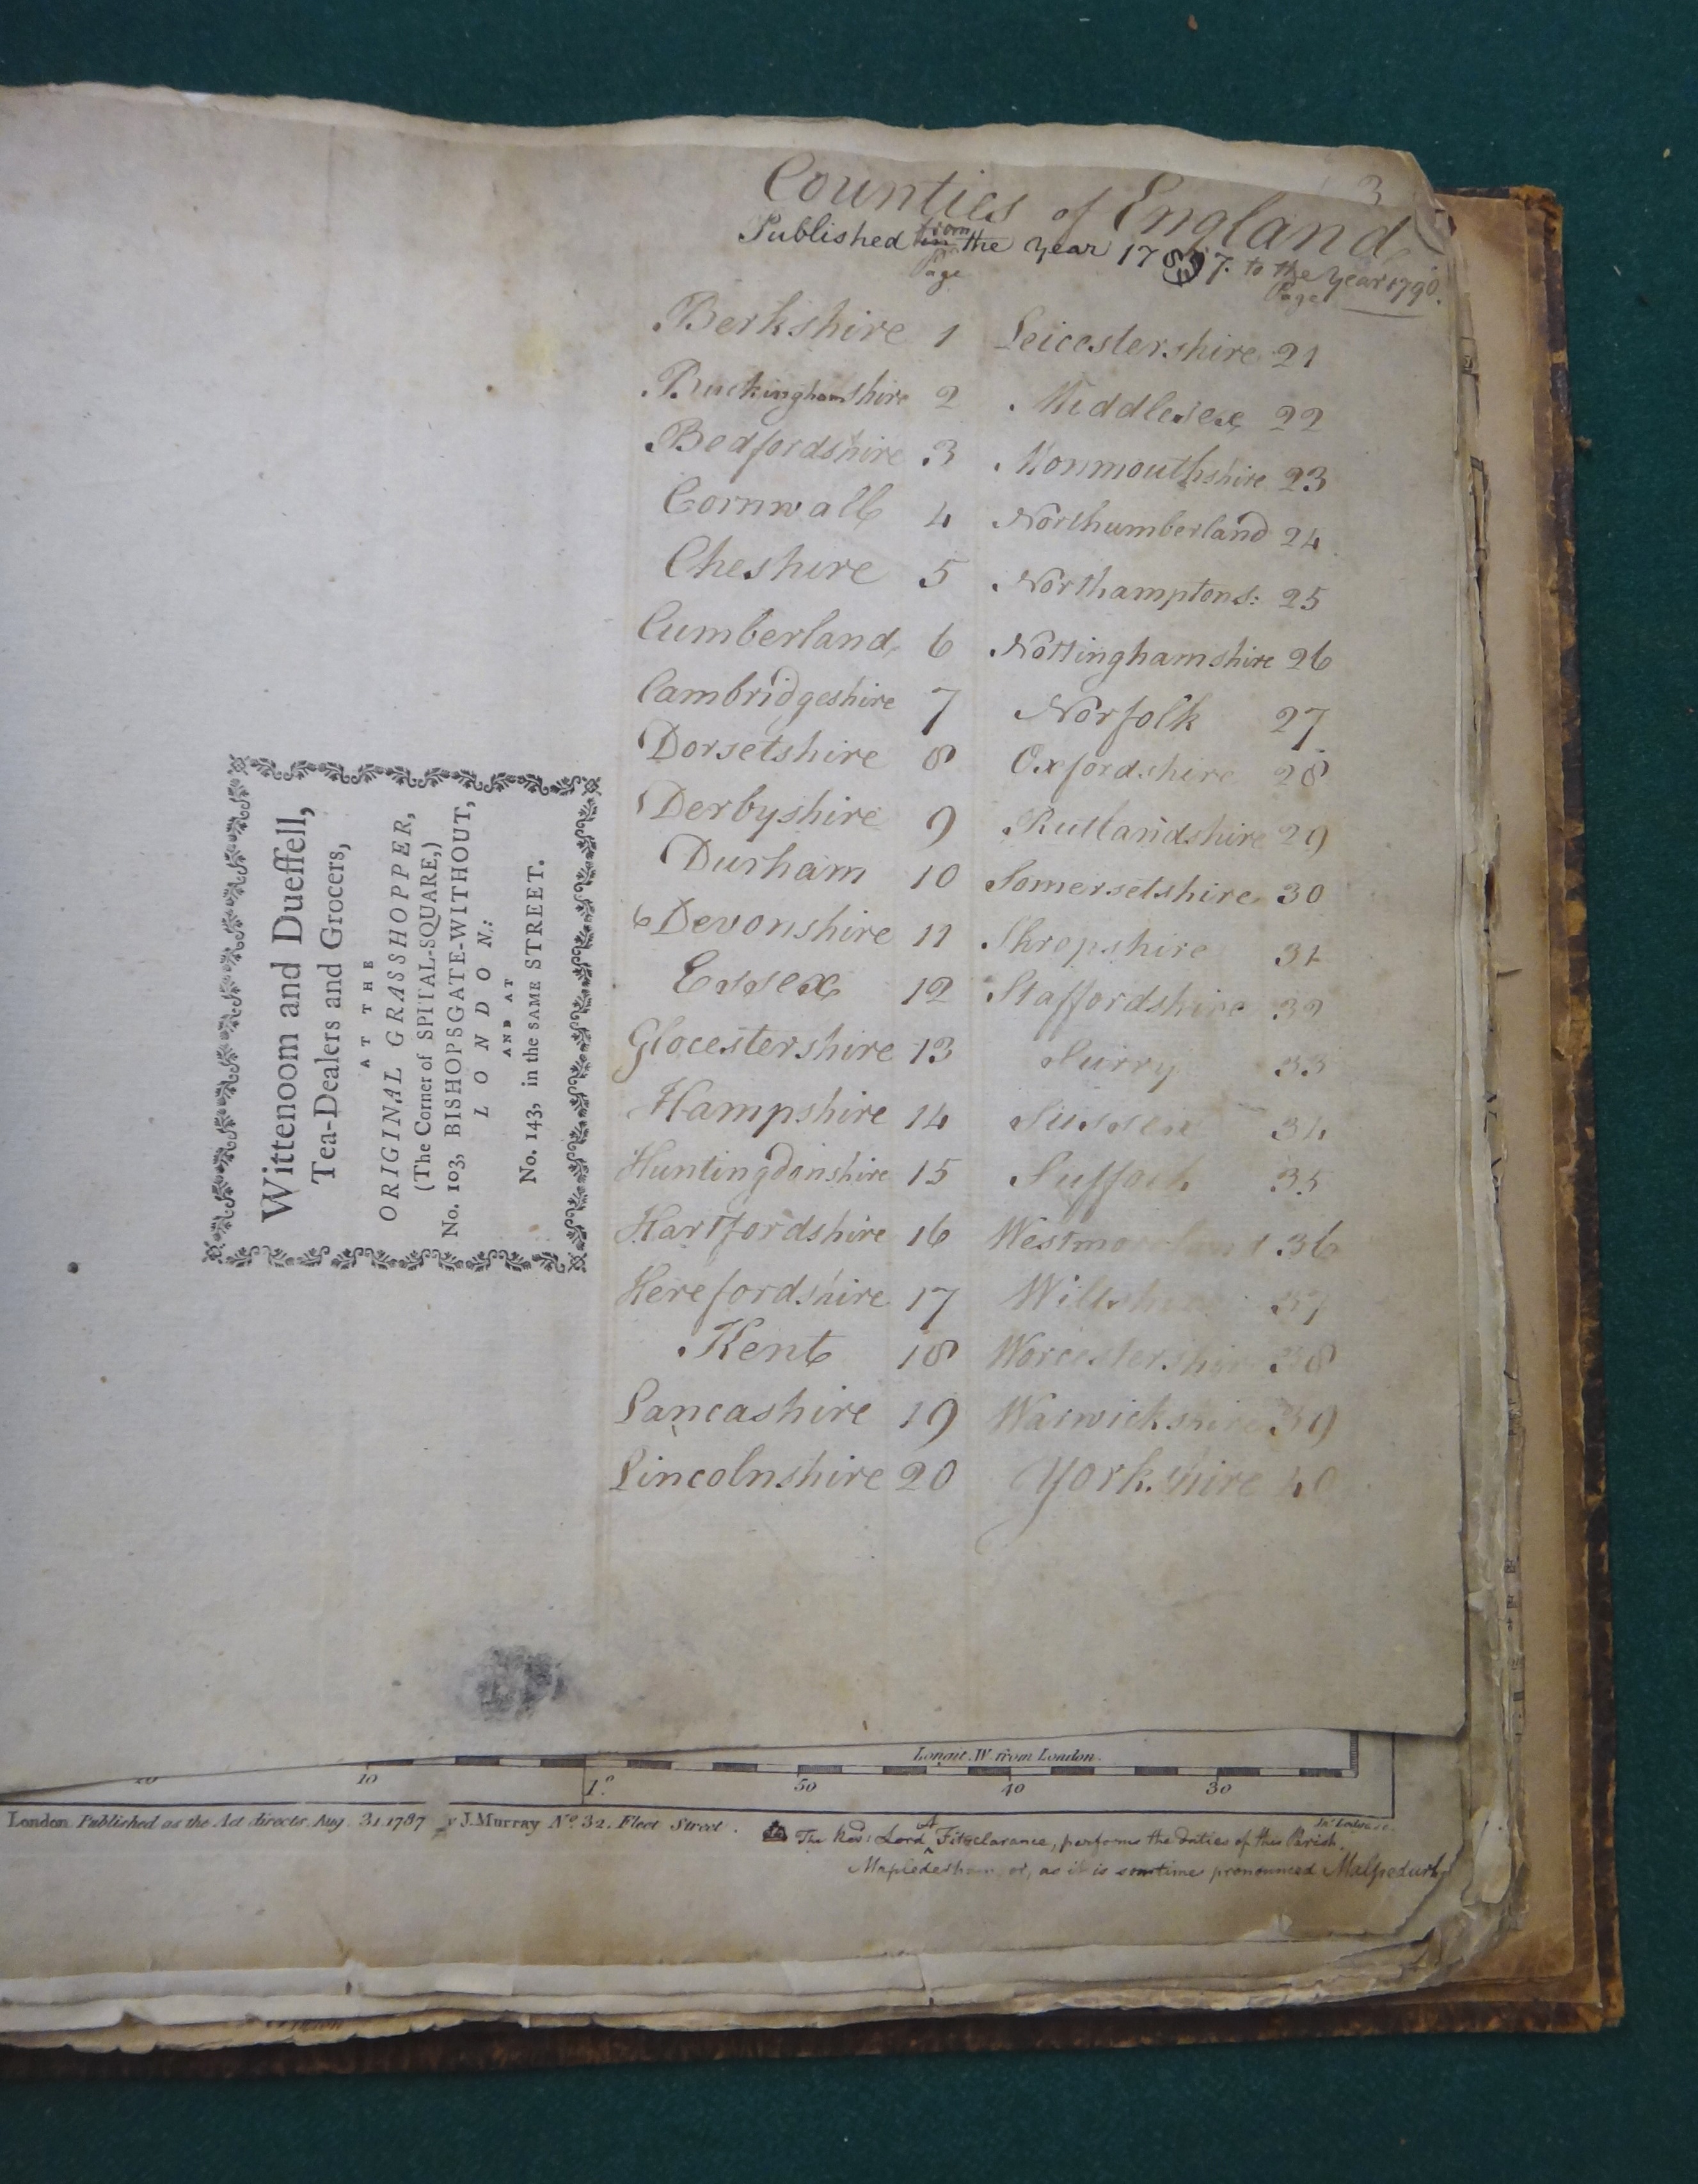 3
Counties of England
Published from in the Year 1787. to the Year 1790.
Page Page
Berkshire 1 Leicestershire 21
Buckinghamshire 2 Middlesex 22
Bedfordshire 3 Monmouthshire 23
Cornwall 4 Northumberland 24
Cheshire 5 Northamptons: 25
Cumberland 6 Nottinghamshire 26
Cambridgeshire 7 Norfolk 27
Dorsetshire 8 Oxfordshire 28
Derbyshire 9 Rutlandshire 29
Durham 10 Somersetshire 30
Devonshire 11 Shropshire 31
Essex 12 Staffordshire 32
Glocestershire 13 Surry 33
Hampshire 14 Sussex 34
Huntingdonshire 15 Suffolk 35
Hartfordshire 16 Westmorland 36
Herefordshire 17 Wiltshire 37
Kent 18 Worcestershire 38
Lancashire 19 Warwickshire 39
Lincolnshire 20 Yorkshire 40
Wittenoom and Dueffell,
Tea-Dealers and Grocers,
AT THE
ORIGINAL GRASSHOPPER,
(The Corner of SPITAL-SQUARE,)
No. 103, BISHOPSGATE-WITHOUT,
LONDON:
AND AT
No. 143, in the SAME STREET.
Longit. W. from London.
10 1° 50 40 30
London Published as the Act directs Aug. 31 1787 J. Murray No. 32. Fleet Street.
The Revd: Lord A Fitzclarance, performs the duties of this Parish.
or, as it is somtimes pronounced